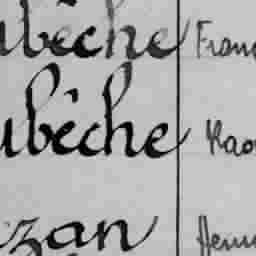 ubêche Fran
ubêche Rao
ezan Henri